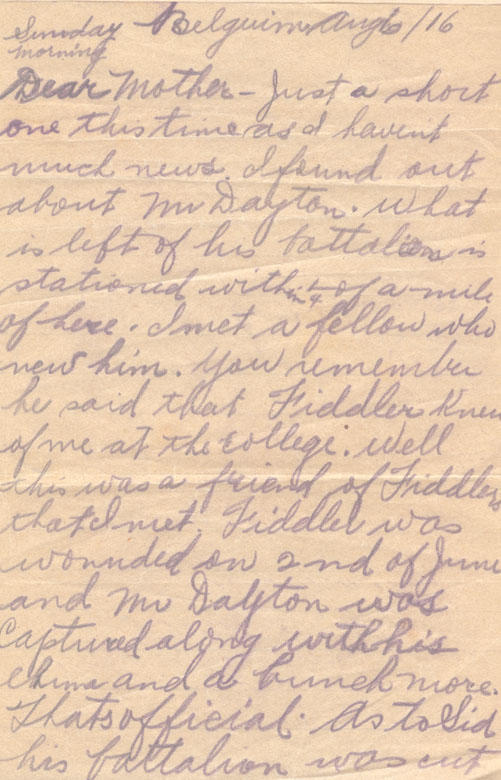 Sunday Belguim Aug 6/16
morning
Dear Mother - Just a short
one this time as I havent
much news. I found out
about Mr Dayton. What
is left of his battalion is
stationed within 1/4 of a mile
of here. I met a fellow who
new him. You remember
he said that Fiddlers knew
of me at the college. Well
this was a friend of Fiddlers
that I met. Fiddler was
wounded on 2nd of June
and Mr Dayton was
captured along with his
chums and a bunch more.
Thats official. As to Sid
his battalion was cut